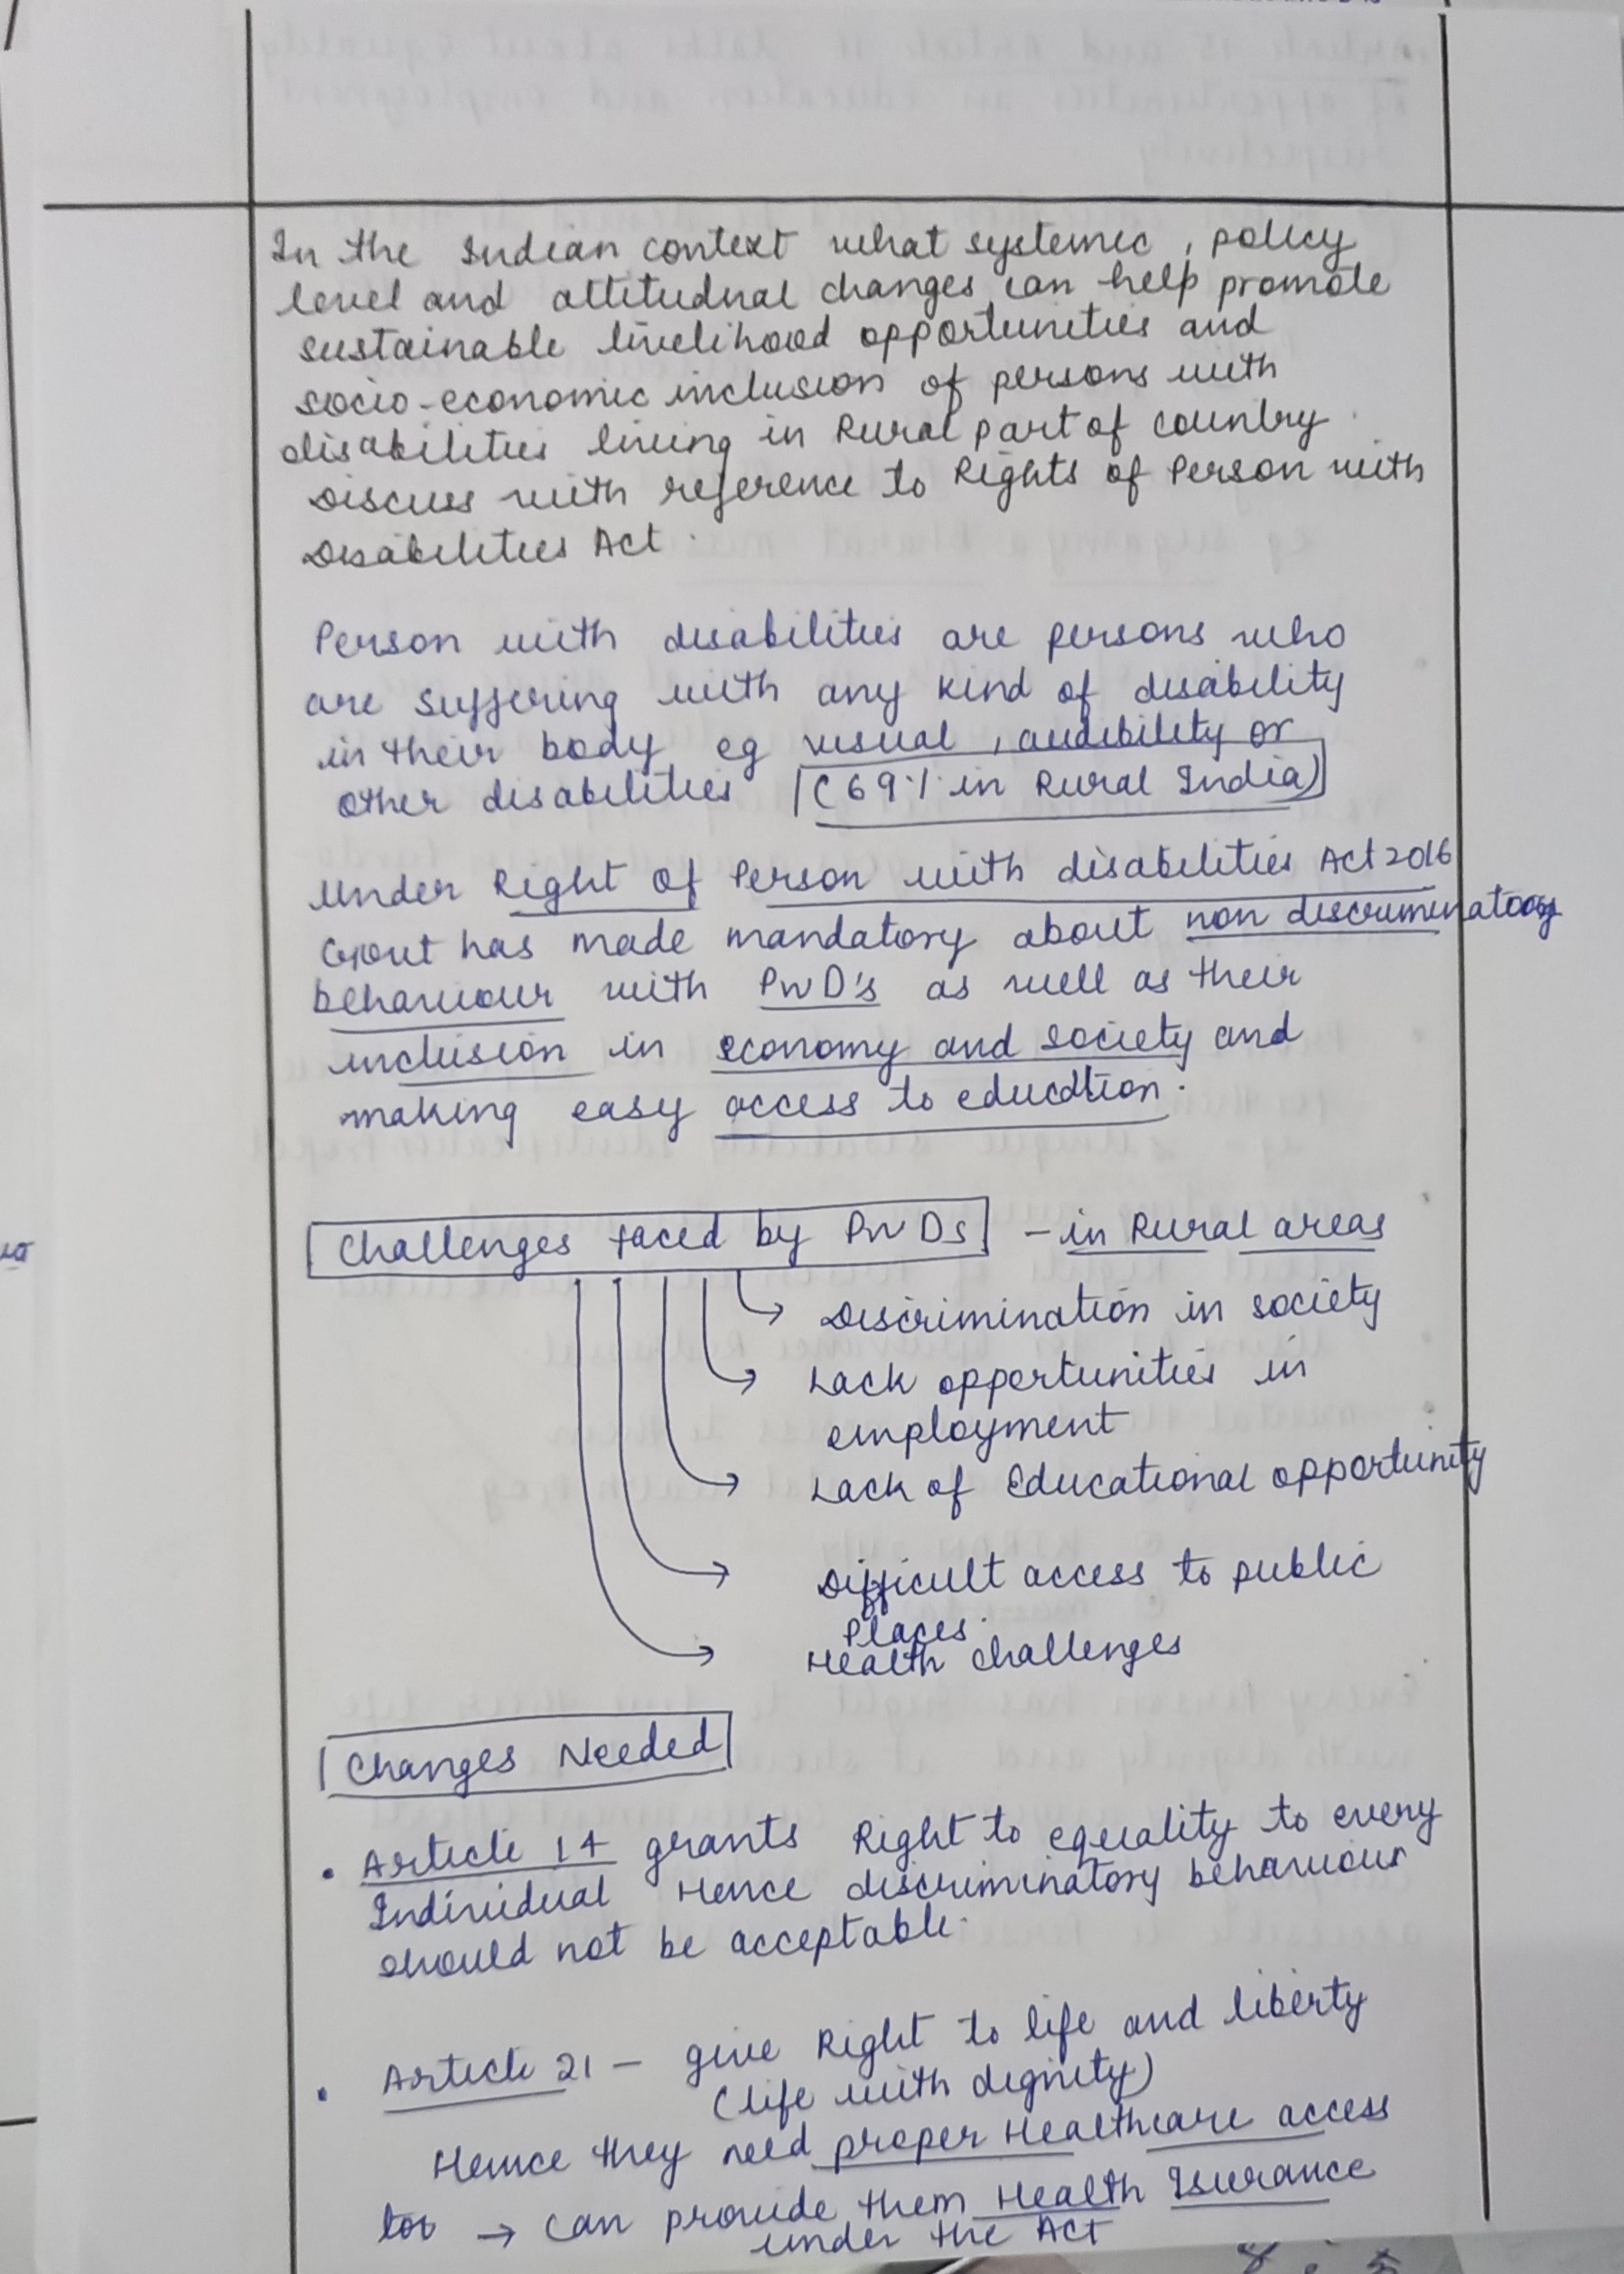 In the Indian context what systemic, policy
level and attitudnal changes can help promote
sustainable livelihood opportunities and
socio-economic inclusion of persons with
disabilities living in Rural part of country.
Discuss with reference to Rights of Person with
Disabilities Act.
Person with disabilities are persons who
are suffering with any kind of disability
in their body eg visual, audibility or
other disabilities (69% in Rural India)
Under Right of Person with disabilities Act 2016
Govt has made mandatory about non discriminatory
behaviour with PwD's as well as their
inclusion in economy and society and
making easy access to education.
Challenges faced by PwDs - in Rural areas
Discrimination in society
Lack opportunities in
employment
Lack of Educational opportunity
Difficult access to public
Places.
Health challenges
Changes Needed
• Article 14 grants Right to equality to every
Individual Hence discriminatory behaviour
should not be acceptable.
• Article 21 - give Right to life and liberty
(life with dignity)
Hence they need proper Healthcare access
too → can provide them Health Isurance
under the Act